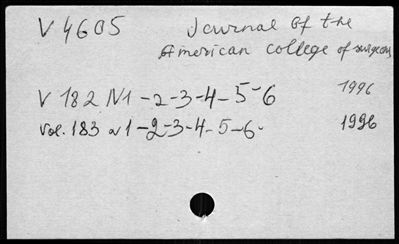 V 4605 Journal of the
American college of surgeons
V 182 N1-2-3-4-5-6 1996
Vol. 183 N1-2-3-4-5-6- 1996